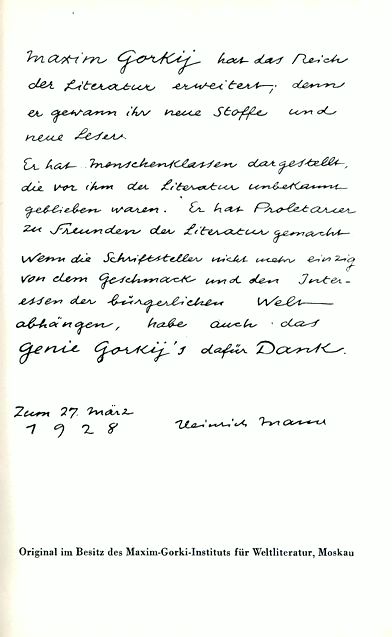 Maxim Gorkij hat das Reich
der Literatur erweitert; denn
er gewann ihr neue Stoffe und
neue Leser.
Er hat Menschenklassen dargestellt,
die vor ihm der Literatur unbekannt
geblieben waren. Er hat Proletarier
zu Freunden der Literatur gemacht
Wenn die Schriftsteller nicht mehr einzig
von dem Geschmack und den Inter-
essen der bürgerlichen Welt
abhängen, habe auch das
Genie Gorkij's dafür Dank.
Zum 27. März
1928
Heinrich Mann
Original im Besitz des Maxim-Gorki-Instituts für Weltliteratur, Moskau